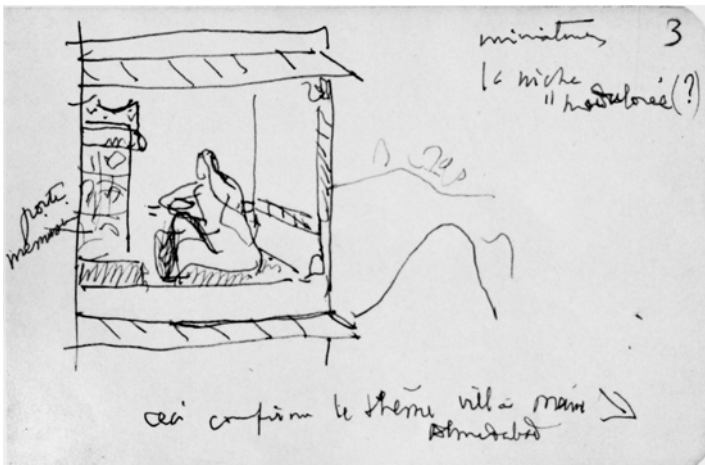 miniatures 3
la niche
"modulorée (?)
porte
ceci confirme le thème villa Mair
Ahmedabad